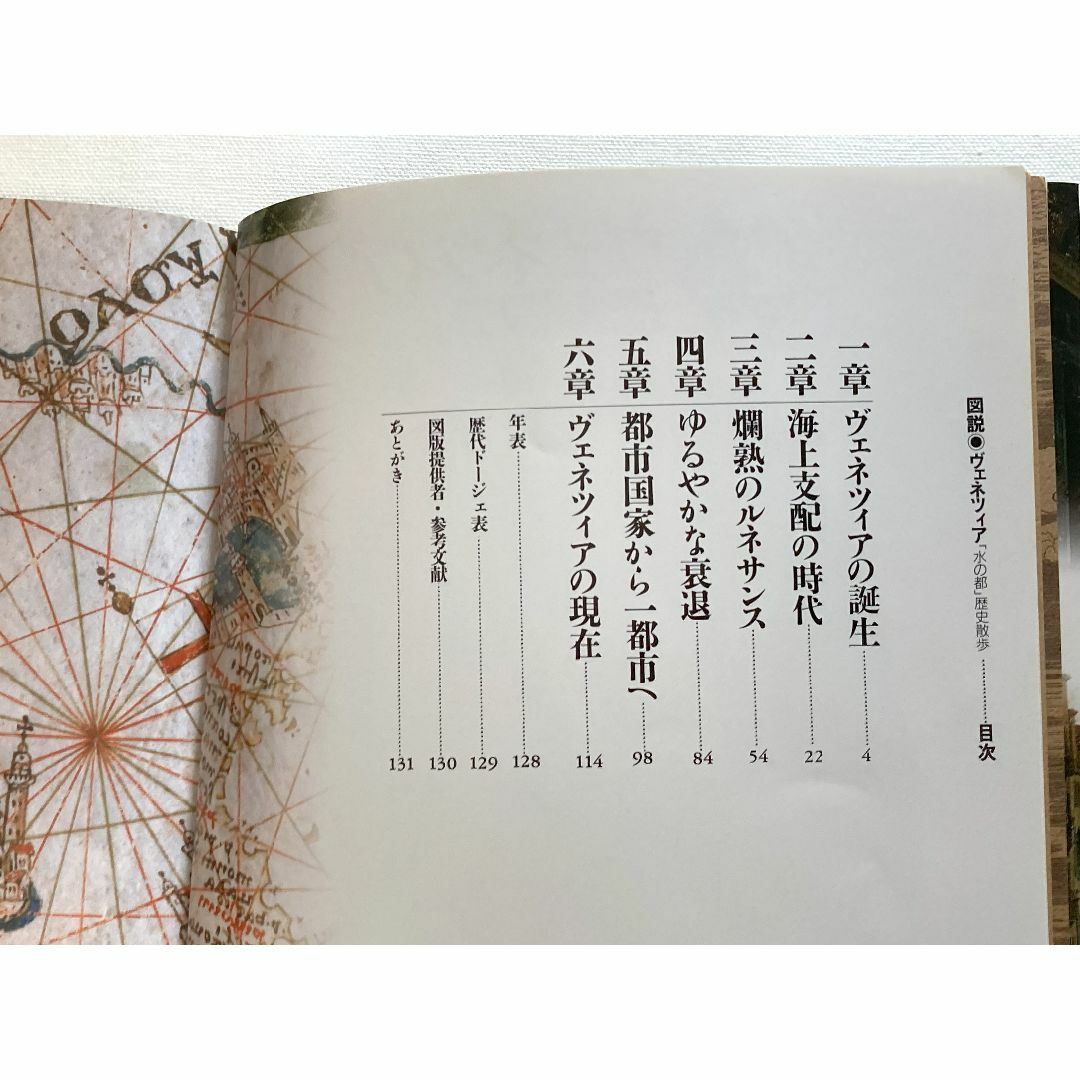 図説●ヴェネツィア「水の都」歴史散歩…………目次
一章 ヴェネツィアの誕生…………4
二章 海上支配の時代…………22
三章 爛熟のルネサンス…………54
四章 ゆるやかな衰退…………84
五章 都市国家から一都市へ…………98
六章 ヴェネツィアの現在…………114
年表…………128
歴代ドージェ表…………129
図版提供者・参考文献…………130
あとがき…………131